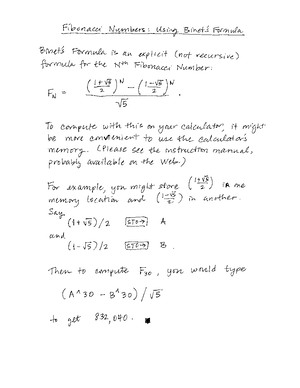 Fibonacci Numbers: Using Binet's Formula
Binet's Formula is an explicit (not recursive)
formula for the Nth Fibonacci Number:
F_N = ( ((1+√5)/2)^N − ((1−√5)/2)^N ) / √5 .
To compute with this on your calculator, it might
be more convenient to use the calculator's
memory. (Please see the instruction manual,
probably available on the Web.)
For example, you might store ((1+√5)/2) in one
memory location and ((1−√5)/2) in another.
Say
(1+√5)/2 STO→ A
and
(1−√5)/2 STO→ B .
Then to compute F_30, you would type
(A^30 − B^30)/√5
to get 832,040.